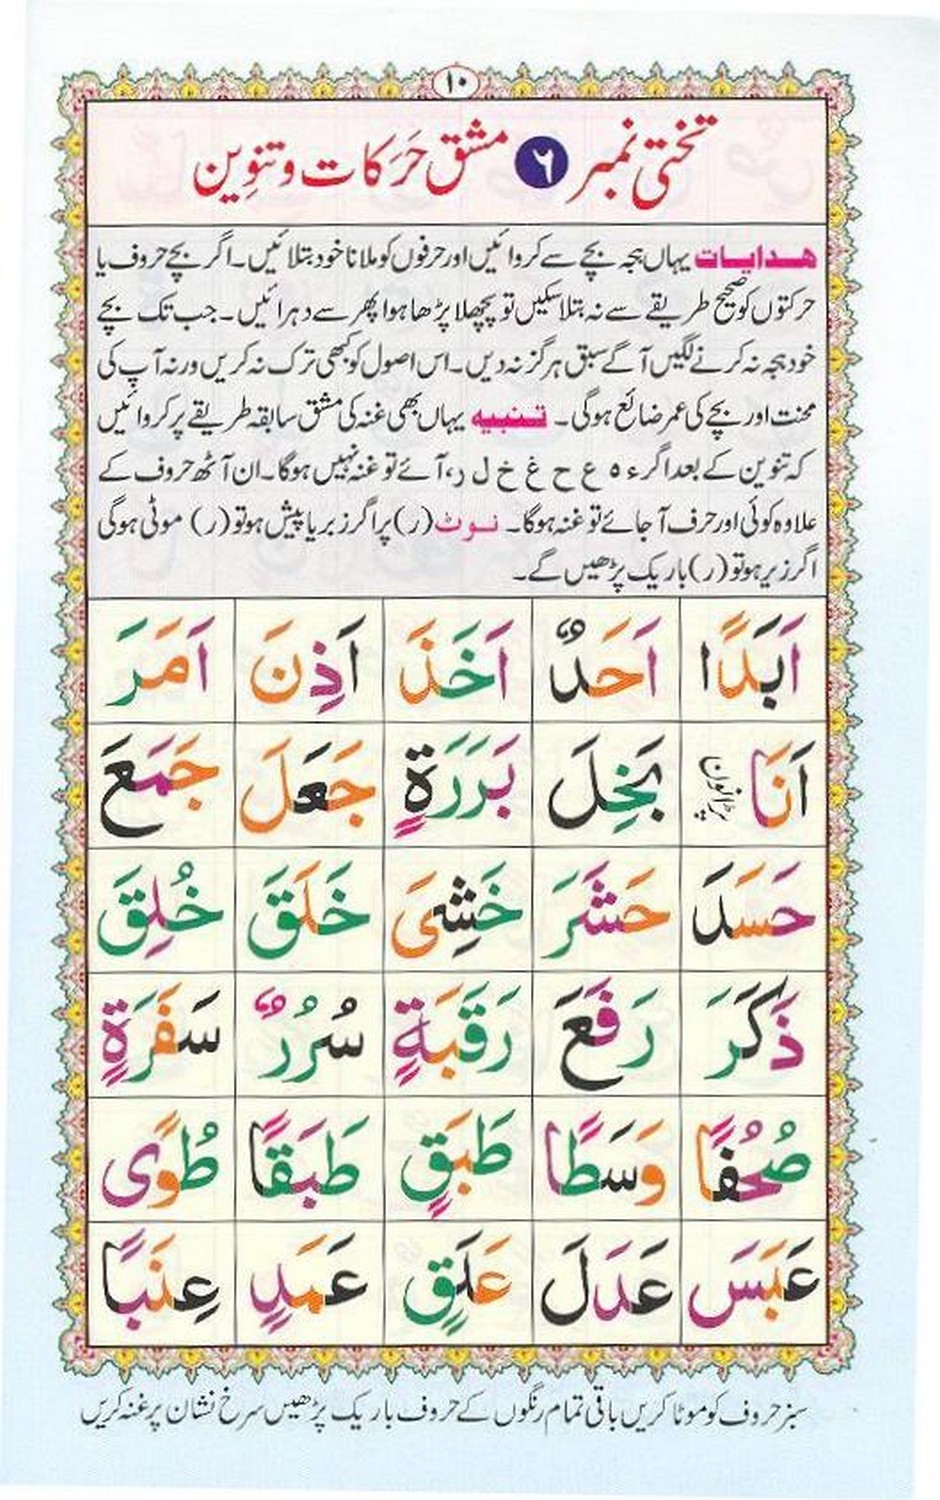 ۱۰
تختی نمبر ۶ مشق حَرَکات و تنوِین
ھدایات یہاں ہجہ بچے سے کروائیں اور حرفوں کو ملانا خود بتلائیں۔ اگر بچے حروف یا
حرکتوں کو صحیح طریقے سے نہ بتلا سکیں تو پچھلا پڑھا ہوا پھر سے دہرائیں۔ جب تک بچے
خود ہجہ نہ کرنے لگیں آگے سبق ہرگز نہ دیں۔ اس اصول کو کبھی ترک نہ کریں ورنہ آپ کی
محنت اور بچے کی عمر ضائع ہوگی۔ تنبیہ یہاں بھی غنہ کی مشق سابقہ طریقے پر کروائیں
کہ تنوین کے بعد اگر ء ہ ع ح غ خ ل ر، آئے تو غنہ نہیں ہوگا۔ ان آٹھ حروف کے
علاوہ کوئی اور حرف آ جائے تو غنہ ہوگا۔ نوٹ (ر) پر اگر زبر یا پیش ہو تو (ر) موٹی ہوگی
اگر زیر ہو تو (ر) باریک پڑھیں گے۔
اَبَدًا اَحَدٌ اَخَذَ اَذِنَ اَمَرَ
اَنَا بَخِلَ بَرَرَةٍ جَعَلَ جَمَعَ
حَسَدَ حَشَرَ خَشِىَ خَلَقَ خُلِقَ
ذَكَرَ رَفَعَ رَقَبَةٍ سُرُرٌ سَفَرَةٍ
صُحُفًا وَسَطًا طَبَقٍ طَبَقًا طُوًى
عَبَسَ عَدَلَ عَلَقٍ عَمَدٍ عِنَبًا
سبز حروف کو موٹا کریں باقی تمام رنگوں کے حروف باریک پڑھیں سرخ نشان پر غنہ کریں